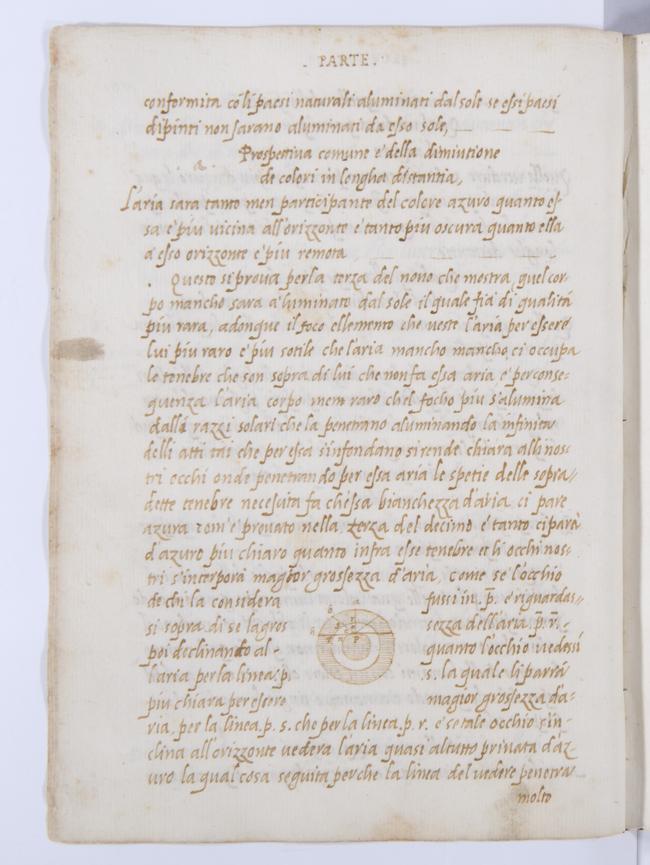 . PARTE .
conformita cō li paesi naturali aluminati dal sole se essi paesi
dipinti non sarano aluminati da esso sole,
Prospettiva comune e della dimiutione
de colori in lengha distantia,
L'aria sara tanto men participante del colore azuro quanto es-
sa è piu vicina all'orizzonte e tanto piu oscura quanto ella
a esso orizzonte e' piu remota
. Questo si prova per la terza del nono che mostra, quel cor-
po mancho sara a'luminato dal sole il quale fia di qualità
piu rara, adonque il foco ellemento che veste l'aria per essere
lui piu raro e' piu sotile che l'aria mancho mancho, ci occupa
le tenebre che son sopra di lui che non fa essa aria e' per conse-
guenza l'aria corpo men raro ch'el focho piu s'alumina
dalli razzi solari che la penetrano aluminando la infinita
delli atti tai che per essa s'infondano si rende chiara alli nos-
tri occhi onde penetrando per essa aria le spetie delle sopra//
dette tenebre necessita fa ch'essa bianchezza d'aria ci pare
azura com'e provato nella terza del decimo e tanto ci parè
d'azuro piu chiaro quanto infra esse tenebre et li occhi nos-
tri s'interporà magior grossezza d'aria, come se l'occhio
de chi la considera fussi in . p . e riguardas-
si sopra di se la gros sezza dell'aria . p . r . -
poi declinando al - quanto l'occhio vedessi
l'aria per la linea . p . s . la quale li parrà
piu chiara per essere magior grossezza d'a-
ria, per la linea . p . s . che per la linea . p . r . e se tale occhio s'in-
clina all'orizzonte vedera l'aria quasi al tutto privata d'az-
uro la qual cosa seguita perche la linea del vedere penetra
molto